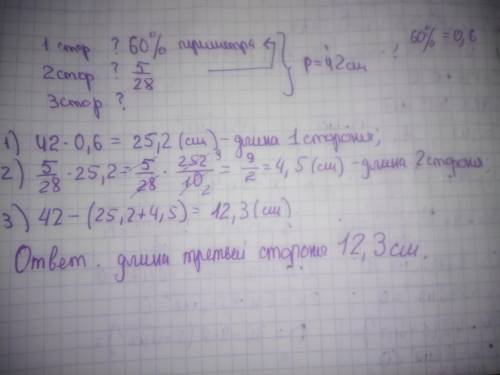 1 стор ? 60% периметра
60% = 0,6
2 стор ? 5/28
} P=42см
3 стор ?
1) 42 · 0,6 = 25,2 (см) - длина 1 стороны;
2) 5/28 · 25,2 = 5/28 · 252 9/10 2 = 9/2 = 4,5 (см) - длина 2 стороны
3) 42 - (25,2+4,5) = 12,3 (см)
Ответ. длина третьей стороны 12,3 см.